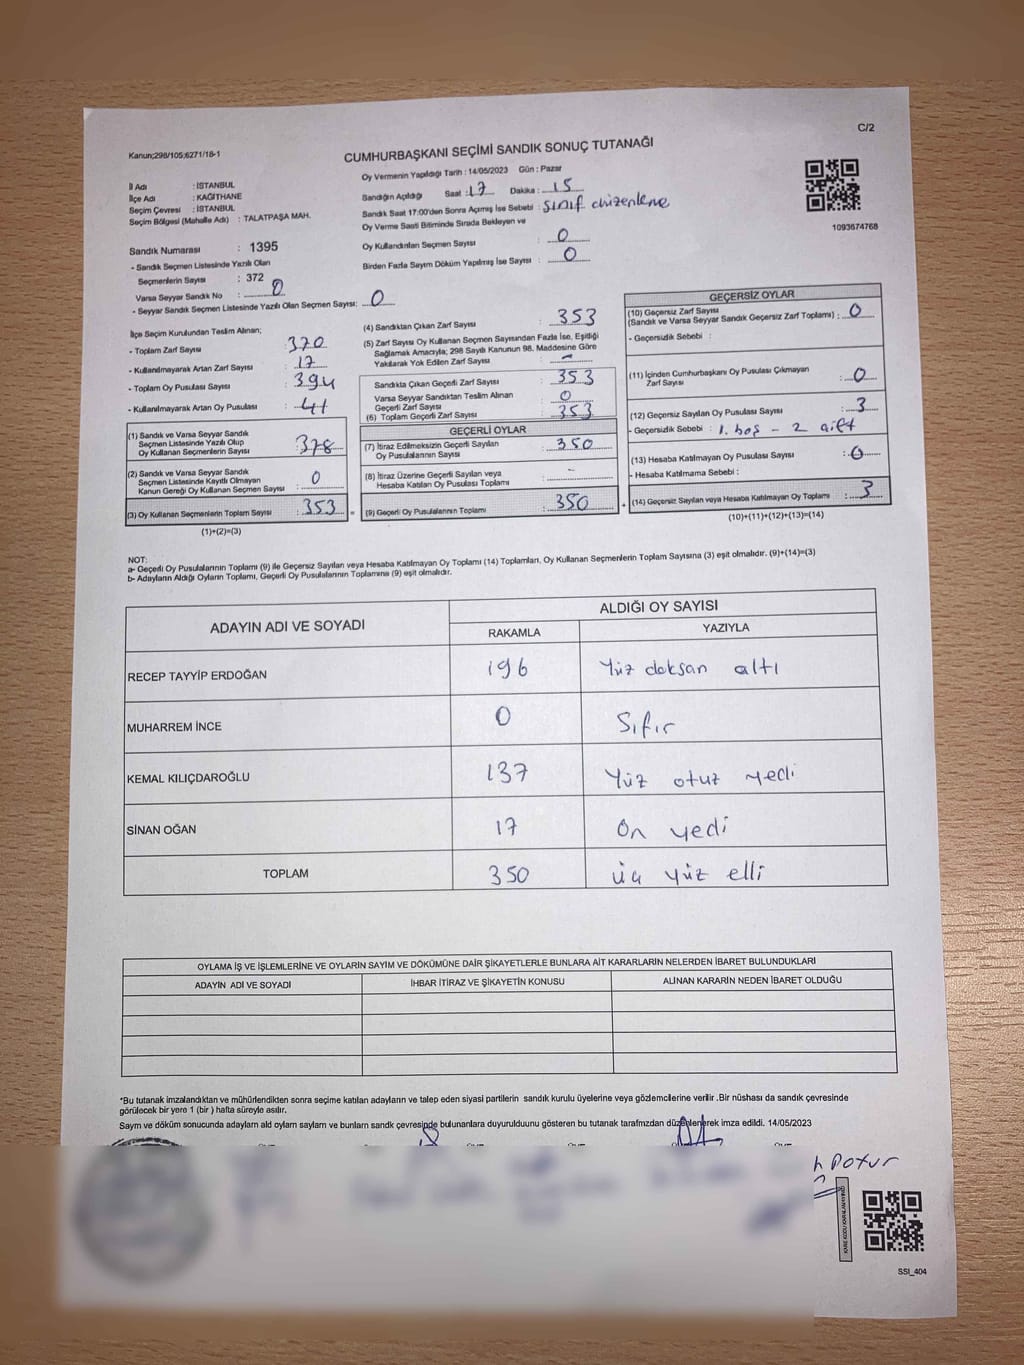 C/2
Kanun;298/105;6271/18-1
CUMHURBAŞKANI SEÇİMİ SANDIK SONUÇ TUTANAĞI
Oy Vermenin Yapıldığı Tarih : 14/05/2023 Gün : Pazar
İl Adı : İSTANBUL
İlçe Adı : KAĞITHANE
Seçim Çevresi : İSTANBUL
Seçim Bölgesi (Mahalle Adı) : TALATPAŞA MAH.
Sandığın Açıldığı Saat : 17 Dakika : 15
Sandık Saat 17:00'den Sonra Açımış İse Sebebi : Sınıf düzenleme
Oy Verme Saati Bitiminde Sırada Bekleyen ve
Oy Kullandırılan Seçmen Sayısı : 0
Birden Fazla Sayım Döküm Yapılmış İse Sayısı : 0
1093674768
Sandık Numarası : 1395
- Sandık Seçmen Listesinde Yazılı Olan
Seçmenlerin Sayısı : 372
Varsa Seyyar Sandık No : 0
- Seyyar Sandık Seçmen Listesinde Yazılı Olan Seçmen Sayısı: 0
İlçe Seçim Kurulundan Teslim Alınan;
- Toplam Zarf Sayısı : 370
- Kullanılmayarak Artan Zarf Sayısı : 17
- Toplam Oy Pusulası Sayısı : 394
- Kullanılmayarak Artan Oy Pusulası : 41
(1) Sandık ve Varsa Seyyar Sandık
Seçmen Listesinde Yazılı Olup
Oy Kullanan Seçmenlerin Sayısı : 378
(2) Sandık ve Varsa Seyyar Sandık
Seçmen Listesinde Kayıtlı Olmayan
Kanun Gereği Oy Kullanan Seçmen Sayısı : 0
(3) Oy Kullanan Seçmenlerin Toplam Sayısı : 353
(1)+(2)=(3)
(4) Sandıktan Çıkan Zarf Sayısı : 353
(5) Zarf Sayısı Oy Kullanan Seçmen Sayısından Fazla İse, Eşitliği
Sağlamak Amacıyla; 298 Sayılı Kanunun 98. Maddesine Göre
Yakılarak Yok Edilen Zarf Sayısı : -
Sandıkta Çıkan Geçerli Zarf Sayısı : 353
Varsa Seyyar Sandıktan Teslim Alınan
Geçerli Zarf Sayısı : 0
(6) Toplam Geçerli Zarf Sayısı : 353
GEÇERLİ OYLAR
(7) İtiraz Edilmeksizin Geçerli Sayılan
Oy Pusulalarının Sayısı : 350
(8) İtiraz Üzerine Geçerli Sayılan veya
Hesaba Katılan Oy Pusulası Toplamı : -
= (9) Geçerli Oy Pusulalarının Toplamı : 350 +
GEÇERSİZ OYLAR
(10) Geçersiz Zarf Sayısı
(Sandık ve Varsa Seyyar Sandık Geçersiz Zarf Toplamı) : 0
- Geçersizlik Sebebi :
(11) İçinden Cumhurbaşkanı Oy Pusulası Çıkmayan
Zarf Sayısı : 0
(12) Geçersiz Sayılan Oy Pusulası Sayısı : 3
- Geçersizlik Sebebi : 1. boş - 2 çift
(13) Hesaba Katılmayan Oy Pusulası Sayısı : 0
- Hesaba Katılmama Sebebi :
(14) Geçersiz Sayılan veya Hesaba Katılmayan Oy Toplamı : 3
(10)+(11)+(12)+(13)=(14)
NOT:
a- Geçerli Oy Pusulalarının Toplamı (9) ile Geçersiz Sayılan veya Hesaba Katılmayan Oy Toplamı (14) Toplamları, Oy Kullanan Seçmenlerin Toplam Sayısına (3) eşit olmalıdır. (9)+(14)=(3)
b- Adayların Aldığı Oyların Toplamı, Geçerli Oy Pusulalarının Toplamına (9) eşit olmalıdır.
ADAYIN ADI VE SOYADI ALDIĞI OY SAYISI
RAKAMLA YAZIYLA
RECEP TAYYİP ERDOĞAN 196 Yüz doksan altı
MUHARREM İNCE 0 Sıfır
KEMAL KILIÇDAROĞLU 137 Yüz otuz yedi
SİNAN OĞAN 17 On yedi
TOPLAM 350 üç yüz elli
OYLAMA İŞ VE İŞLEMLERİNE VE OYLARIN SAYIM VE DÖKÜMÜNE DAİR ŞİKAYETLERLE BUNLARA AİT KARARLARIN NELERDEN İBARET BULUNDUKLARI
ADAYIN ADI VE SOYADI İHBAR İTİRAZ VE ŞİKAYETİN KONUSU ALINAN KARARIN NEDEN İBARET OLDUĞU
*Bu tutanak imzalandıktan ve mühürlendikten sonra seçime katılan adayların ve talep eden siyasi partilerin sandık kurulu üyelerine veya gözlemcilerine verilir .Bir nüshası da sandık çevresinde
görülecek bir yere 1 (bir ) hafta süreyle asılır.
Sayım ve döküm sonucunda adayların ald oyların sayların ve bunların sandk çevresinde bulunanlara duyurulduunu gösteren bu tutanak tarafımzdan düzenlenerek imza edildi. 14/05/2023
KARE KODU KARALAMAYINIZ
SSI_404